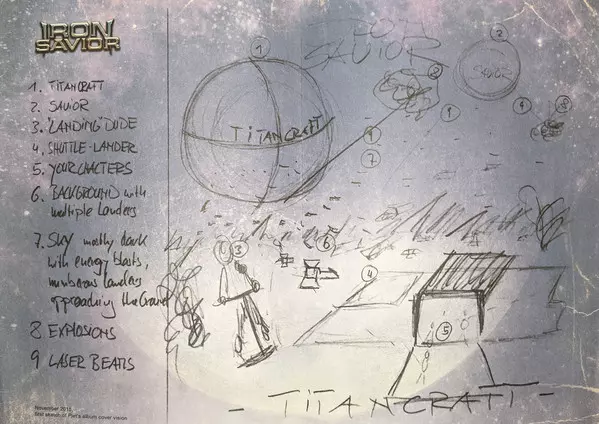 IRON
SAVIOR
1. TITANCRAFT
2. SAVIOR
3. "LANDING" DUDE
4. SHUTTLE-LANDER
5. YOUR CHACTERS
6. BACKGROUND with
multiple Landers
7. SKY mostly dark
with energy blasts,
numberous landers
approaching the Ground
8 EXPLOSIONS
9 LASER BEAMS
IRON
SAVIOR
1
TITANCRAFT
2
SAVIOR
9
9
9
8
7
3
6
4
5
- TITANCRAFT -
November 2015
sketch of Piet's album cover vision